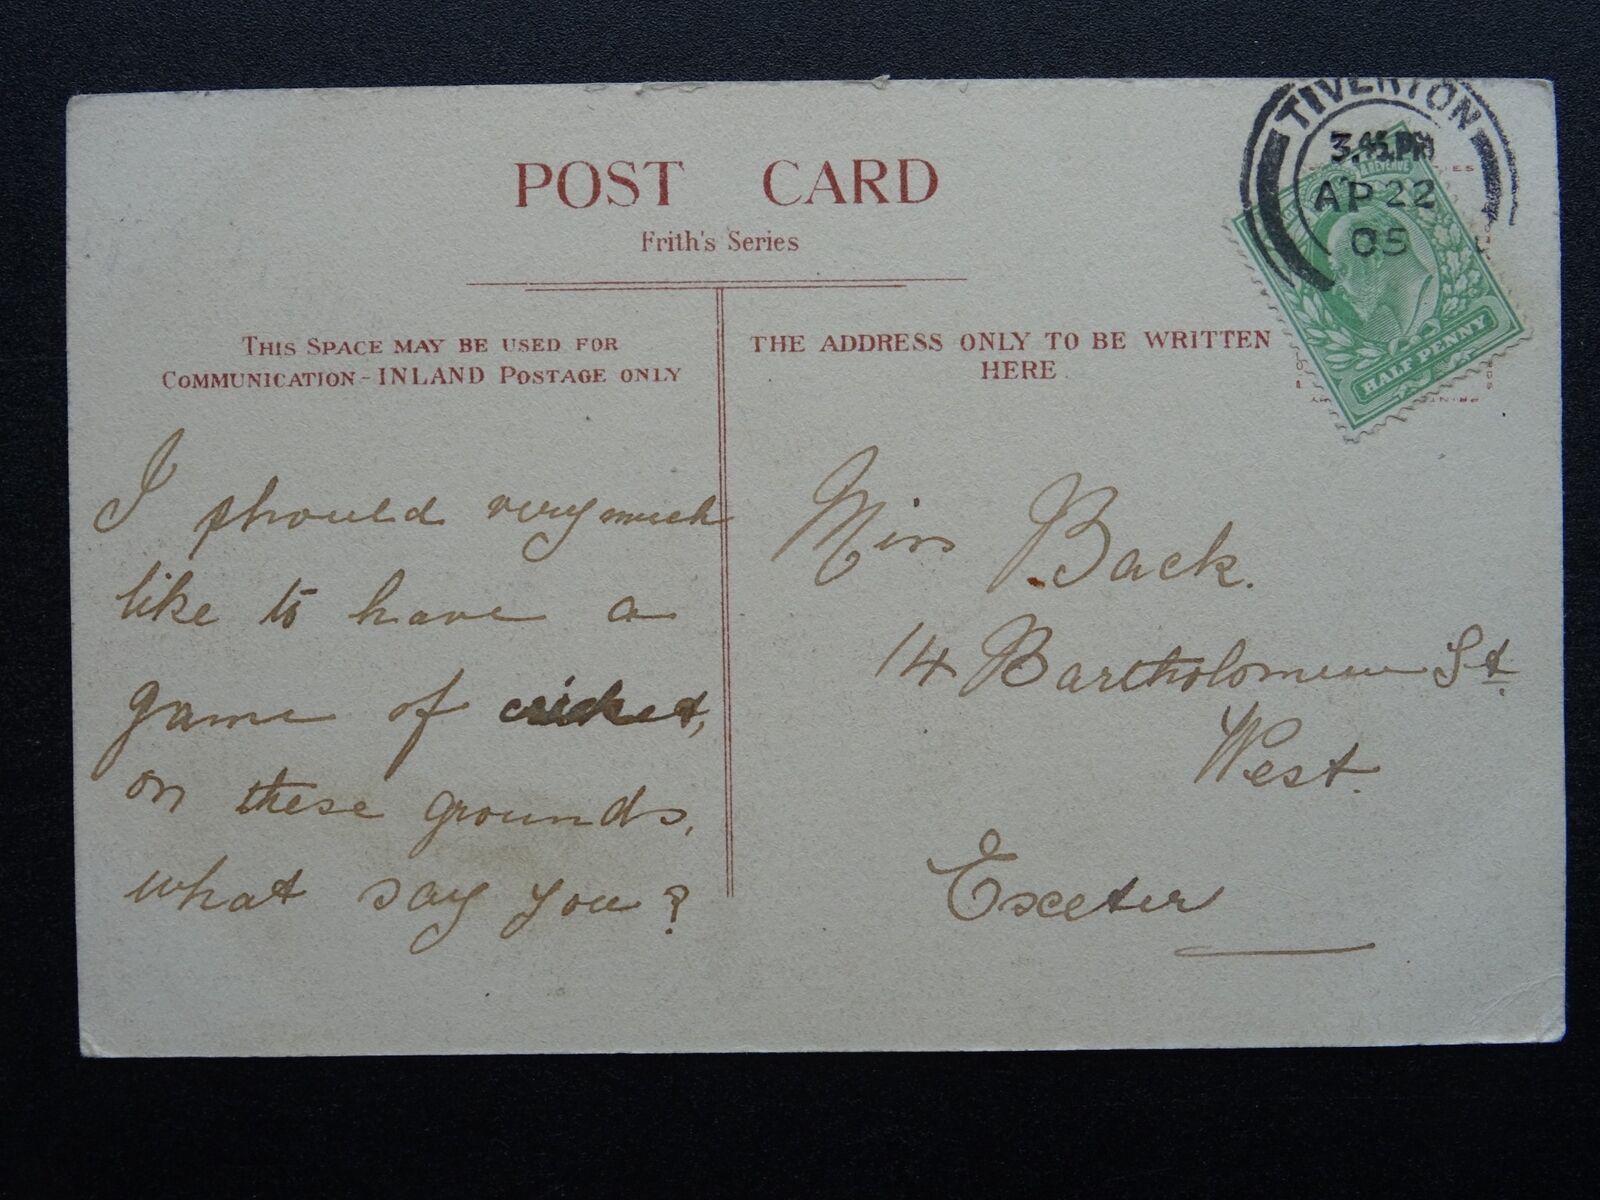 POST CARD
Frith's Series
THIS SPACE MAY BE USED FOR
COMMUNICATION - INLAND POSTAGE ONLY
THE ADDRESS ONLY TO BE WRITTEN
HERE
TIVERTON
3.45 PM
AP 22
05
REVENUE
HALF PENNY
I should very much
like to have a
game of cricket,
on these grounds,
what say you?
Miss Back.
14 Bartholomew St
West.
Exeter